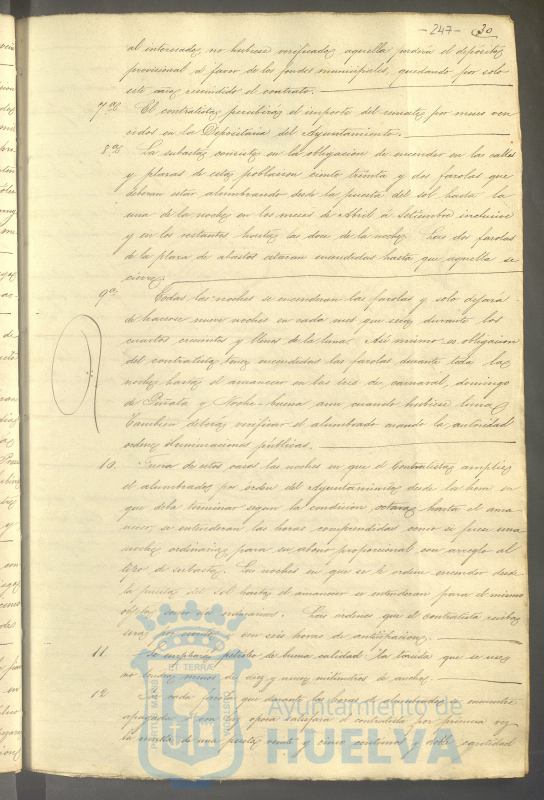 -247- 30
al interesado, no hubiese verificado, aquella perderá el depósito
provisional á favor de los fondos municipales, quedando por solo
este caso rescindido el contrato.
7ª El contratista percibirá el importe del remate por meses ven
cidos en la Depositaria del Ayuntamiento.
8ª La subasta consiste en la obligacion de encender en las calles
y plazas de esta poblacion ciento treinta y dos farolas que
deberan estar alumbrando desde la puesta del sol hasta la
una de la noche en los meses de Abril á Setiembre inclusive
y en los restantes hasta las doce de la noche. Las dos farolas
de la plaza de abastos estaran encendidas hasta que aquella se
cierre.
9ª Todas las noches se encenderan las farolas y solo dejara
de hacerse nueve noches en cada mes que seran durante los
cuartos crecientes y llenos de la luna. Asi mismo es obligacion
del contratista tener encendidas las farolas durante toda la
noche hasta el amanecer en las tres de carnaval, domingo
de Piñata y Noche-buena aun cuando hubiese luna.
Tambien deberá verificar el alumbrado cuando la autoridad
ordene iluminaciones públicas.
10. Fuera de estos casos las noches en que el Contratista amplie
el alumbrado por orden del Ayuntamiento desde la hora en
que deba terminar segun la condicion octava hasta el ama
necer, se entenderan las horas comprendidas como si fuera una
noche ordinaria para su abono proporcional con arreglo al
tipo de subasta. Las noches en que se le ordene encender desde
la puesta del sol hasta el amanecer se entenderan para el mismo
como ordinarias. Las órdenes que el contratista reciba
seran por escrito y con seis horas de anticipacion.
11. Se empleará petróleo de buena calidad. La torcida que se use
no tendrá menos de diez y nueve milimetros de ancho.
12. Por cada farola que durante las horas de alumbrado se encuentre
apagada ó con luz opaca satisfará el contratista por primera vez
la multa de una peseta veinte y cinco centimos y doble cantidad
PORTUS MARIS ET TERRÆ CUSTODIA
Ayuntamiento de
HUELVA